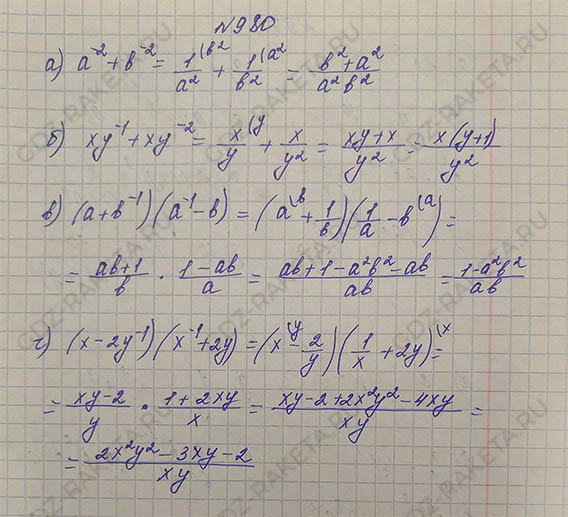 №980
а) a⁻² + b⁻² = 1/a² (b² + 1/b² (a² = (b² + a²)/(a²b²)
б) xy⁻¹ + xy⁻² = x/y (y + x/y² = (xy + x)/y² = x(y+1)/y²
в) (a + b⁻¹)(a⁻¹ - b) = (a (b + 1/b)(1/a - b (a) =
= (ab + 1)/b · (1 - ab)/a = (ab + 1 - a²b² - ab)/(ab) = (1 - a²b²)/(ab)
г) (x - 2y⁻¹)(x⁻¹ + 2y) = (x (y - 2/y)(1/x + 2y) (x =
= (xy - 2)/y · (1 + 2xy)/x = (xy - 2 + 2x²y² - 4xy)/(xy) =
= (2x²y² - 3xy - 2)/(xy)
GDZ-RAKETA.RU